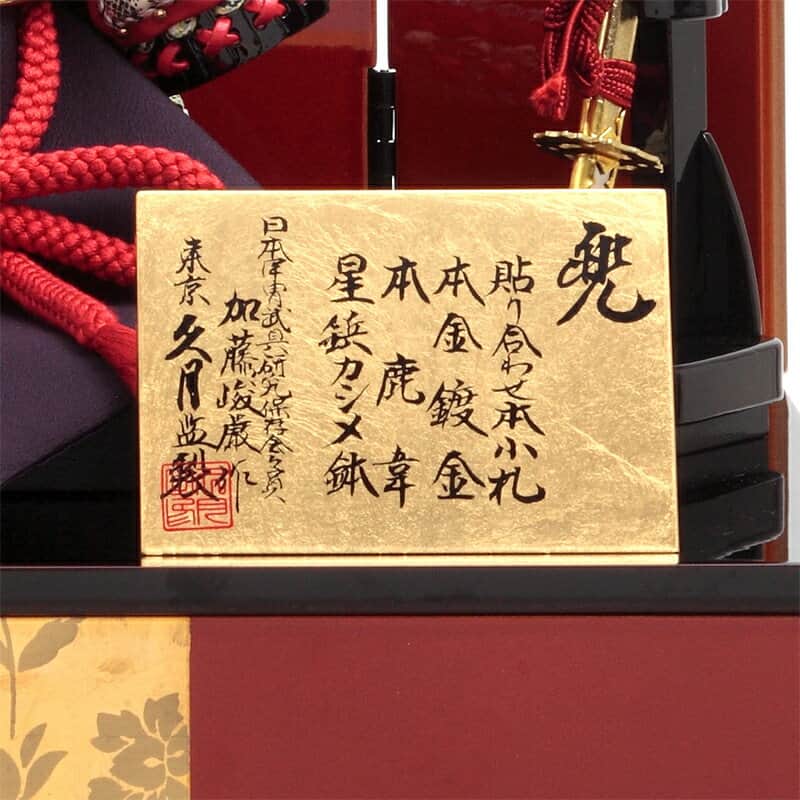 兜
貼り合わせ本小札
本金鍍金
本鹿韋
星鋲カシメ鉢
日本甲冑武具研究保存会会員
加藤峻厳作
東京 久月監製